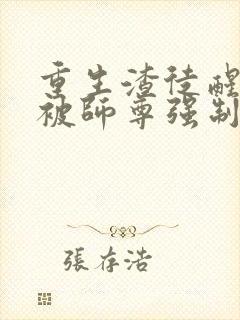 重生渣徒醒
被師尊强制
張存浩